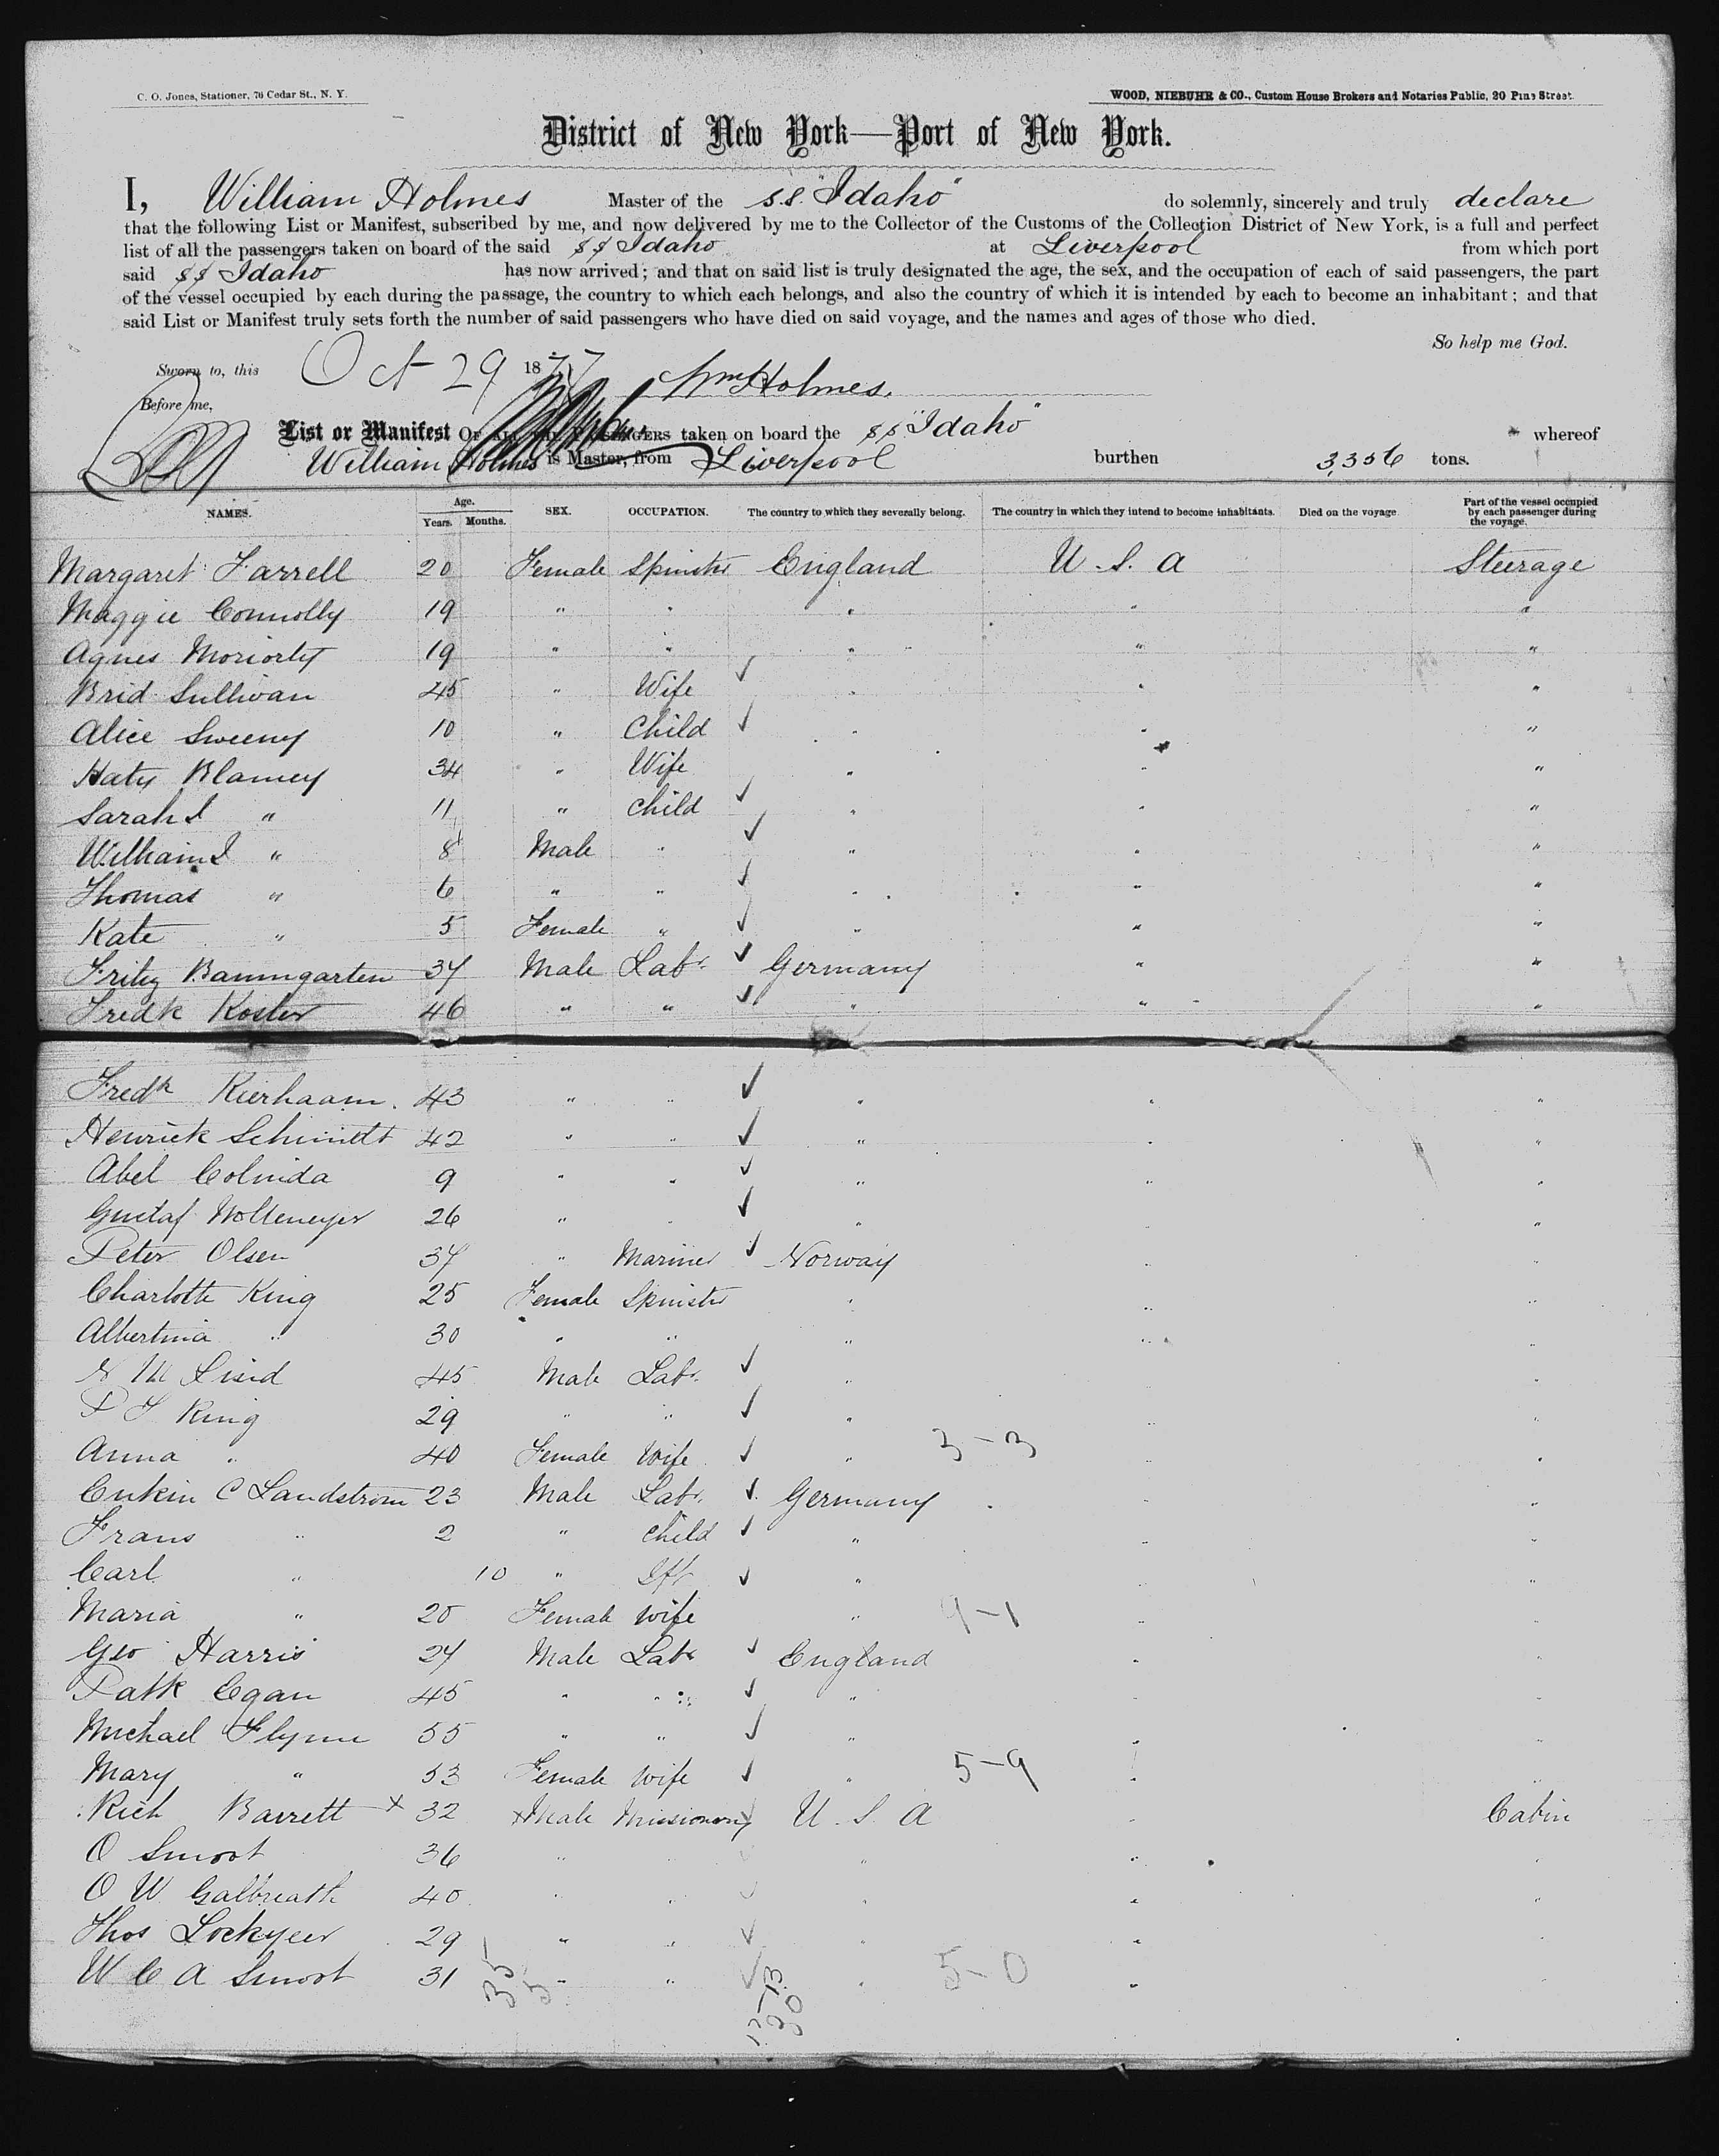 C. O. Jones, Stationer, 76 Cedar St., N. Y.
WOOD, NIEBUHR & CO., Custom House Brokers and Notaries Public, 20 Pine Street.
District of New York—Port of New York.
I, William Holmes Master of the s.s. "Idaho" do solemnly, sincerely and truly declare
that the following List or Manifest, subscribed by me, and now delivered by me to the Collector of the Customs of the Collection District of New York, is a full and perfect
list of all the passengers taken on board of the said ss Idaho at Liverpool from which port
said ss Idaho has now arrived; and that on said list is truly designated the age, the sex, and the occupation of each of said passengers, the part
of the vessel occupied by each during the passage, the country to which each belongs, and also the country of which it is intended by each to become an inhabitant; and that
said List or Manifest truly sets forth the number of said passengers who have died on said voyage, and the names and ages of those who died.
So help me God.
Sworn to, this Oct 29 1877 Wm Holmes.
Before me,
List or Manifest OF ALL THE PASSENGERS taken on board the ss "Idaho" whereof
William Holmes is Master, from Liverpool burthen 3,356 tons.
NAMES. Age. Years. Months. SEX. OCCUPATION. The country to which they severally belong. The country in which they intend to become inhabitants. Died on the voyage Part of the vessel occupied by each passenger during the voyage.
Margaret Farrell 20 Female Spinster England U.S.A Steerage
Maggie Connolly 19 " " " " "
Agnes Moriorty 19 " " " " "
Brid Sullivan 45 " Wife " " "
Alice Sweeny 10 " Child ✓ " " "
Katy Blamey 34 " Wife " " "
Sarah J " 11 " child ✓ " " "
William J " 8 Male " ✓ " " "
Thomas " 6 " " ✓ " " "
Kate " 5 Female " ✓ " " "
Fritz Baumgarten 37 Male Labr ✓ Germany " "
Fredk Koster 46 " " ✓ " " "
Fredk 43 " " ✓ " " "
Henrick Schmidt 42 " " ✓ " " "
Abel Colinda 9 " " ✓ " " "
Gustaf Woltemeyer 26 " " ✓ " " "
Peter Olsen 37 " Mariner ✓ Norway " "
Charlotte King 25 Female Spinster " " "
Albertina " 30 " " " " "
45 Male Labr. ✓ " " "
King 29 " " ✓ " " "
Anna " 40 Female Wife ✓ " 3-3 " "
C Landstrom 23 Male Labr. ✓ Germany " "
Frans " 2 " child ✓ " " "
Carl " 10 " Ift ✓ " " "
Maria " 20 Female wife " 9-1 " "
Geo Harris 24 Male Labr ✓ England " "
Patk Egan 45 " " ✓ " " "
Michael Flynn 55 " " ✓ " " "
Mary " 53 Female wife ✓ " 5-9 " "
Rich Barrett x 32 x Male Missionary ✓ U.S.A " Cabin
O Smoot 36 " " " " "
O W Galbreath 40 " " ✓ " " "
Thos Lockyeer 29 " " ✓ " " "
W C A Smoot 31 " " ✓ " 5-0 "